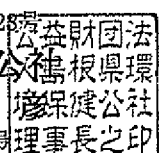 28
公益財団法
人島根県環
境保健公社
理事長之印